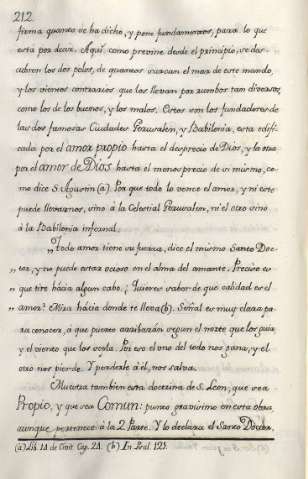 212
firma quanto se ha dicho, y pone fundamentos, para lo que
esta por decir. Aqui, como previne desde el principio, se des-
cubren los dos polos, de quantos surcan el mar de este mundo,
y los vientos contrarios que los llevan por rumbos tan diversos,
como los de los buenos, y los malos. Estos son los fundadores de
las dos famosas Ciudades Jerusalem, y Babilonia, esta edifi-
cada por el amor propio hasta el desprecio de Dios, y la otra
por el amor de Dios hasta el menosprecio de si mismo, co-
mo dice S. Agustin (a). Por que todo lo vence el amor, y ni este
puede llevarnos, sino à la Celestial Jerusalem, ni el otro sino
à la Babilonia infernal.
„Todo amor tiene su fuerza, dice el mismo Santo Doc-
„tor, y no puede estar ocioso en el alma del amante. Preciso es
que tire hácia algun cabo. ¿Quieres saber de que calidad es el
„amor? Mira hácia donde te lleva (b). Señal es muy clara pa-
ra conocer, à que puerto arribarán segun el norte que los guia,
y el viento que los sopla. Por eso el uno del todo nos gana, y el
otro nos pierde. Y perderle à él, nos salva.
Ilustra tambien esta doctrina de S. Leon, que sea
Propio, y que sea Comun: punto gravisimo en esta obra,
aunque pertenece à la 2. Parte. Y lo declara el Santo Doctor.
(a) Lib. 14. de Civit. Cap. 28. (b) In Psal. 121.